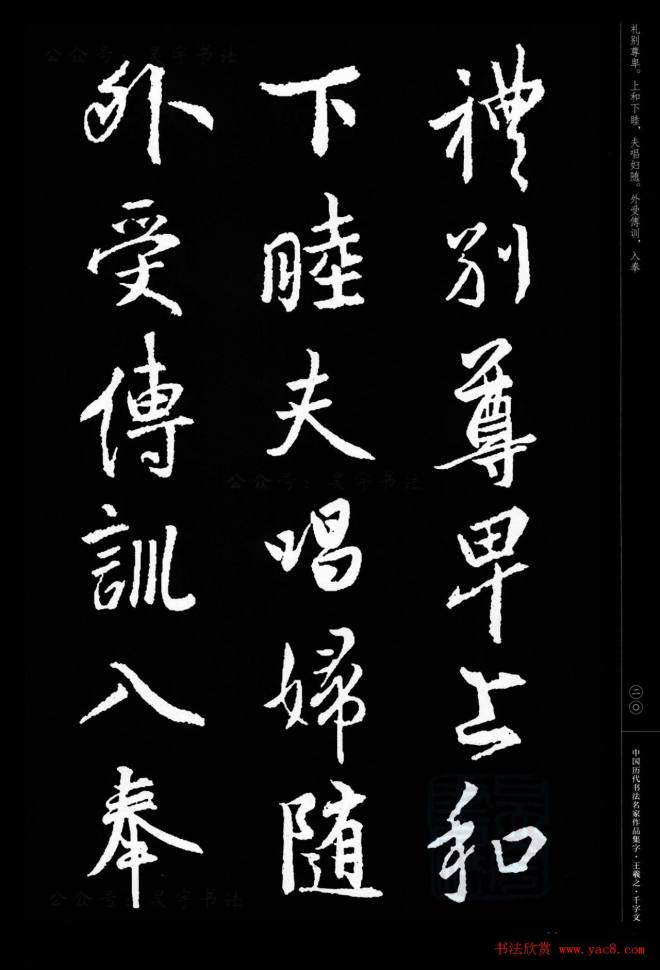 禮别尊卑上和
下睦夫唱婦随
外受傅訓入奉
礼别尊卑。上和下睦，夫唱妇随。外受傅训，入奉
二〇
中国历代书法名家作品集字·王羲之·千字文
公众号：昊宇书法
公众号：昊宇书法
公众号：昊宇书法
书法欣赏 www.yac8.com